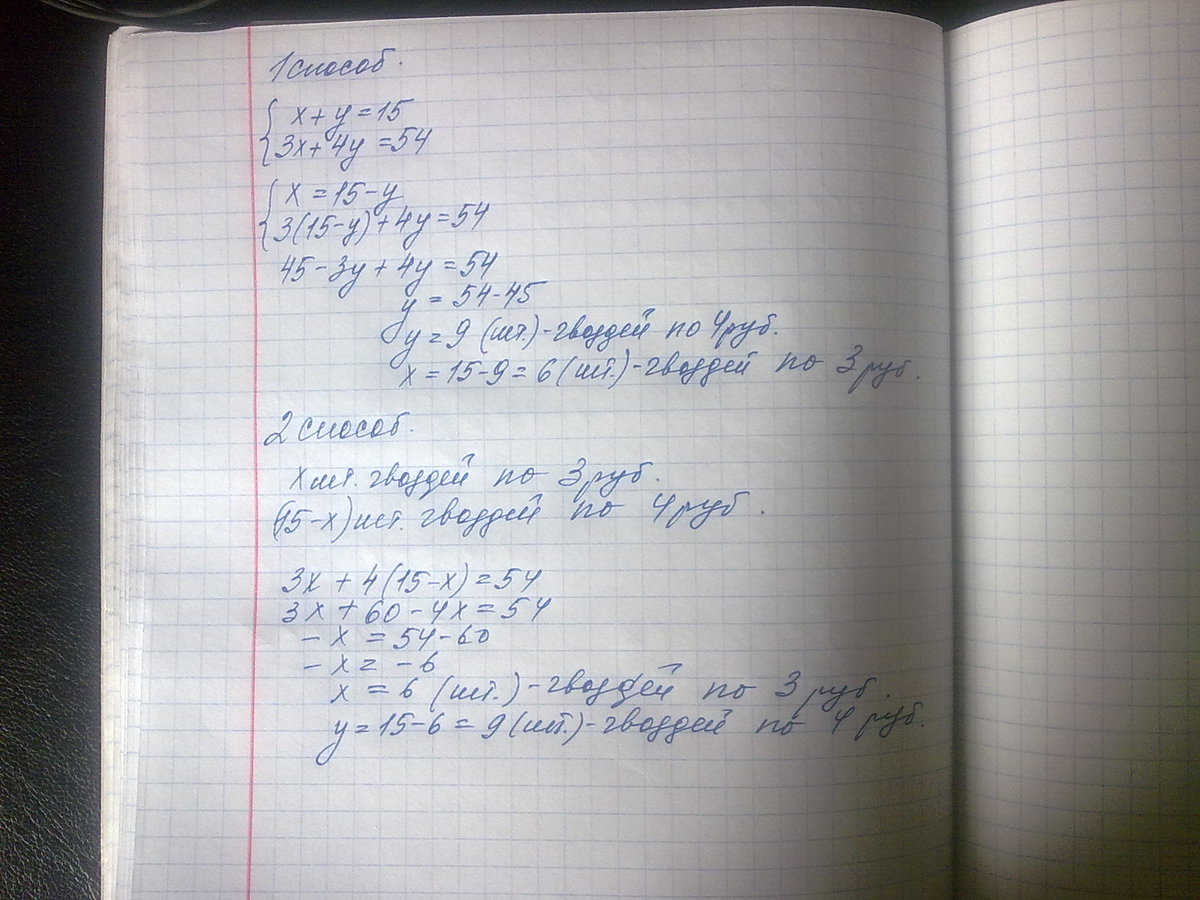 1 способ.
x + y = 15
3x + 4y = 54
x = 15 - y
3(15-y) + 4y = 54
45 - 3y + 4y = 54
y = 54 - 45
y = 9 (шт.) - гвоздей по 4 руб.
x = 15 - 9 = 6 (шт.) - гвоздей по 3 руб.
2 способ.
x шт. гвоздей по 3 руб.
(15-x) шт. гвоздей по 4 руб.
3x + 4(15-x) = 54
3x + 60 - 4x = 54
- x = 54 - 60
- x = - 6
x = 6 (шт.) - гвоздей по 3 руб.
y = 15 - 6 = 9 (шт.) - гвоздей по 4 руб.